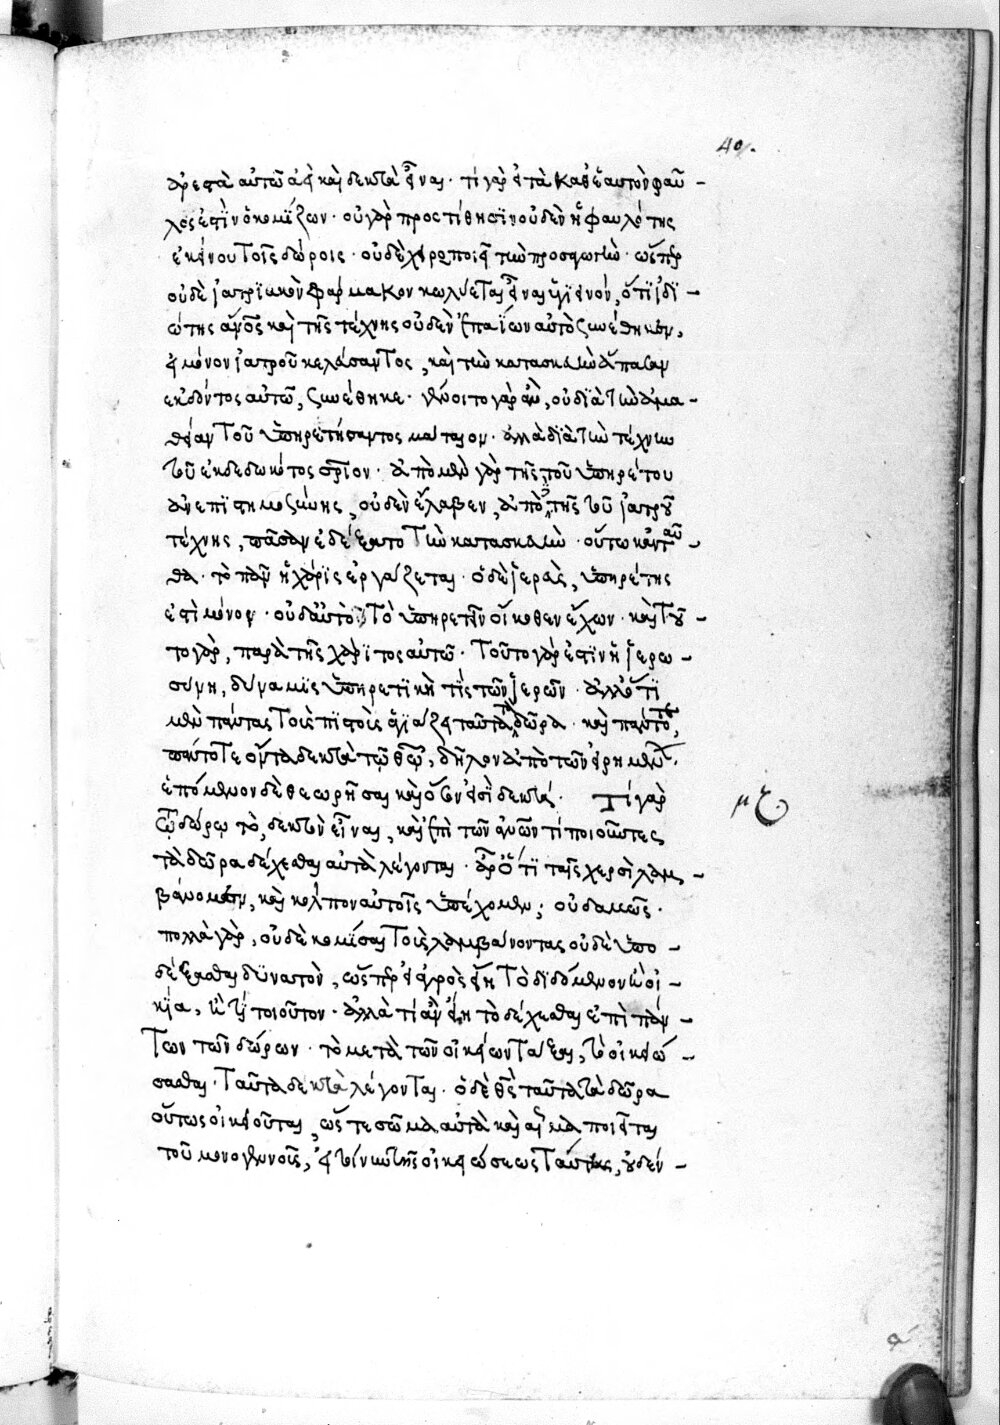 40.
ἀρεστὰ αὐτῶ ἀεὶ καὶ δεκτὰ εἶναι · τί γὰρ εἰ τὰ καθ' ἑαυτὸν φαῦ -
λος ἐστὶν ὁ κομίζων · οὐ γὰρ προστίθησιν οὐδὲν ἡ φαυλότης
ἐκείνου τοῖς δώροις · οὐδὲ χείρω ποιεῖ τὴν προσαγωγὴν · ὥσπερ
οὐδὲ ἰατρικὸν φάρμακον κωλύεται εἶναι ὑγιεινόν, ὅτι ἰδι -
ώτης ἄνος καὶ τῆς τέχνης οὐδὲν ἐπαΐων αὐτὸ συνέθηκεν,
εἰ μόνον ἰατροῦ κελεύσαντος, καὶ τὴν κατασκευὴν ἅπασαν
ἐκδόντος αὐτῶ, συνέθηκε · γένοιτο γὰρ ἂν, οὐ διὰ τὴν ἀμα -
θίαν τοῦ ὑπηρετήσαντος μάταιον · ἀλλὰ διὰ τὴν τέχνην
τοῦ ἐκδεδωκότος
ἀνεπιστημοσύνης, οὐδὲν ἔλαβεν, ἀπὸ τῆς τοῦ ἰατροῦ
τέχνης, πᾶσαν ἐδέξατο τὴν κατασκευὴν · οὕτω κἀνταῦ -
θα · τὸ πᾶν ἡ χάρις ἐργάζεται · ὁ δὲ ἱερεὺς, ὑπηρέτης
ἐστὶ μόνον · οὐδ' αὐτὸ τὸ ὑπηρετεῖν οἴκοθεν ἔχων · καὶ τοῦ -
το γὰρ, παρὰ τῆς χάριτος αὐτῶ · τοῦτο γὰρ ἐστὶν ἡ ἱερω -
σύνη, δύναμις ὑπηρετικὴ τίς τῶν ἱερῶν · ἀλλ' ὅτι
μὲν πάντας τοὺς πιστοὺς ἁγιάζει ταῦτα τὰ δῶρα · καὶ πάντοτε,
πάντοτε ὄντα δεκτὰ τῷ θεῷ, δῆλον ἀπὸ τῶν εἰρημένων ·
ἑπόμενον δὲ θεωρῆσαι καὶ ὅπως ἐστὶ δεκτά · Τί γὰρ
τῷ δώρῳ τὸ, δεκτὸν εἶναι, καὶ ἐπὶ τῶν ἀνων τί ποιοῦντες
τὰ δῶρα δέχεσθαι αὐτὰ λέγονται · ἆρ' ὅτι ταῖς χερσὶ λαμ -
βάνομεν, καὶ κόλπον αὐτοῖς ὑπέχομεν; οὐδαμῶς ·
πολλὰ γὰρ, οὐδὲ κομίσαι τοὺς λαμβάνοντας οὐδὲ ὑπο -
δέξασθαι δυνατὸν, ὥσπερ εἰ ἀγρὸς εἴη τὸ διδόμενον ἢ οἰ -
κία, ἤ τι τοιοῦτον · ἀλλὰ τί ἂν εἴη τὸ δέχεσθαι ἐπὶ πάν -
των τῶν δώρων · τὸ μετὰ τῶν οἰκείων τάξαι, τὸ οἰκειώ -
σασθαι · ταῦτα δεκτὰ λέγονται · ὁ δὲ θς ταῦτα τὰ δῶρα
οὕτως οἰκειοῦται, ὥστε σῶμα αὐτὰ καὶ αἷμα ποιεῖται
τοῦ μονογενοῦς, εἰ τοίνυν τῆς οἰκειώσεως ταύτης, οὐδέν -
μζ